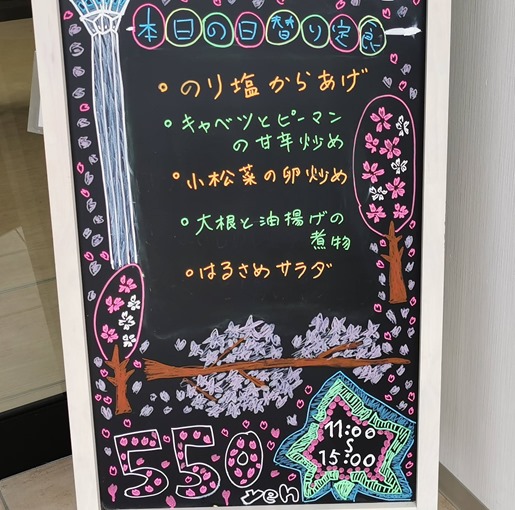 本日の日替り定食
・のり塩からあげ
・キャベツとピーマン
の甘辛炒め
・小松菜の卵炒め
・大根と油揚げの
煮物
・はるさめサラダ
550
yen
11:00
〜
15:00